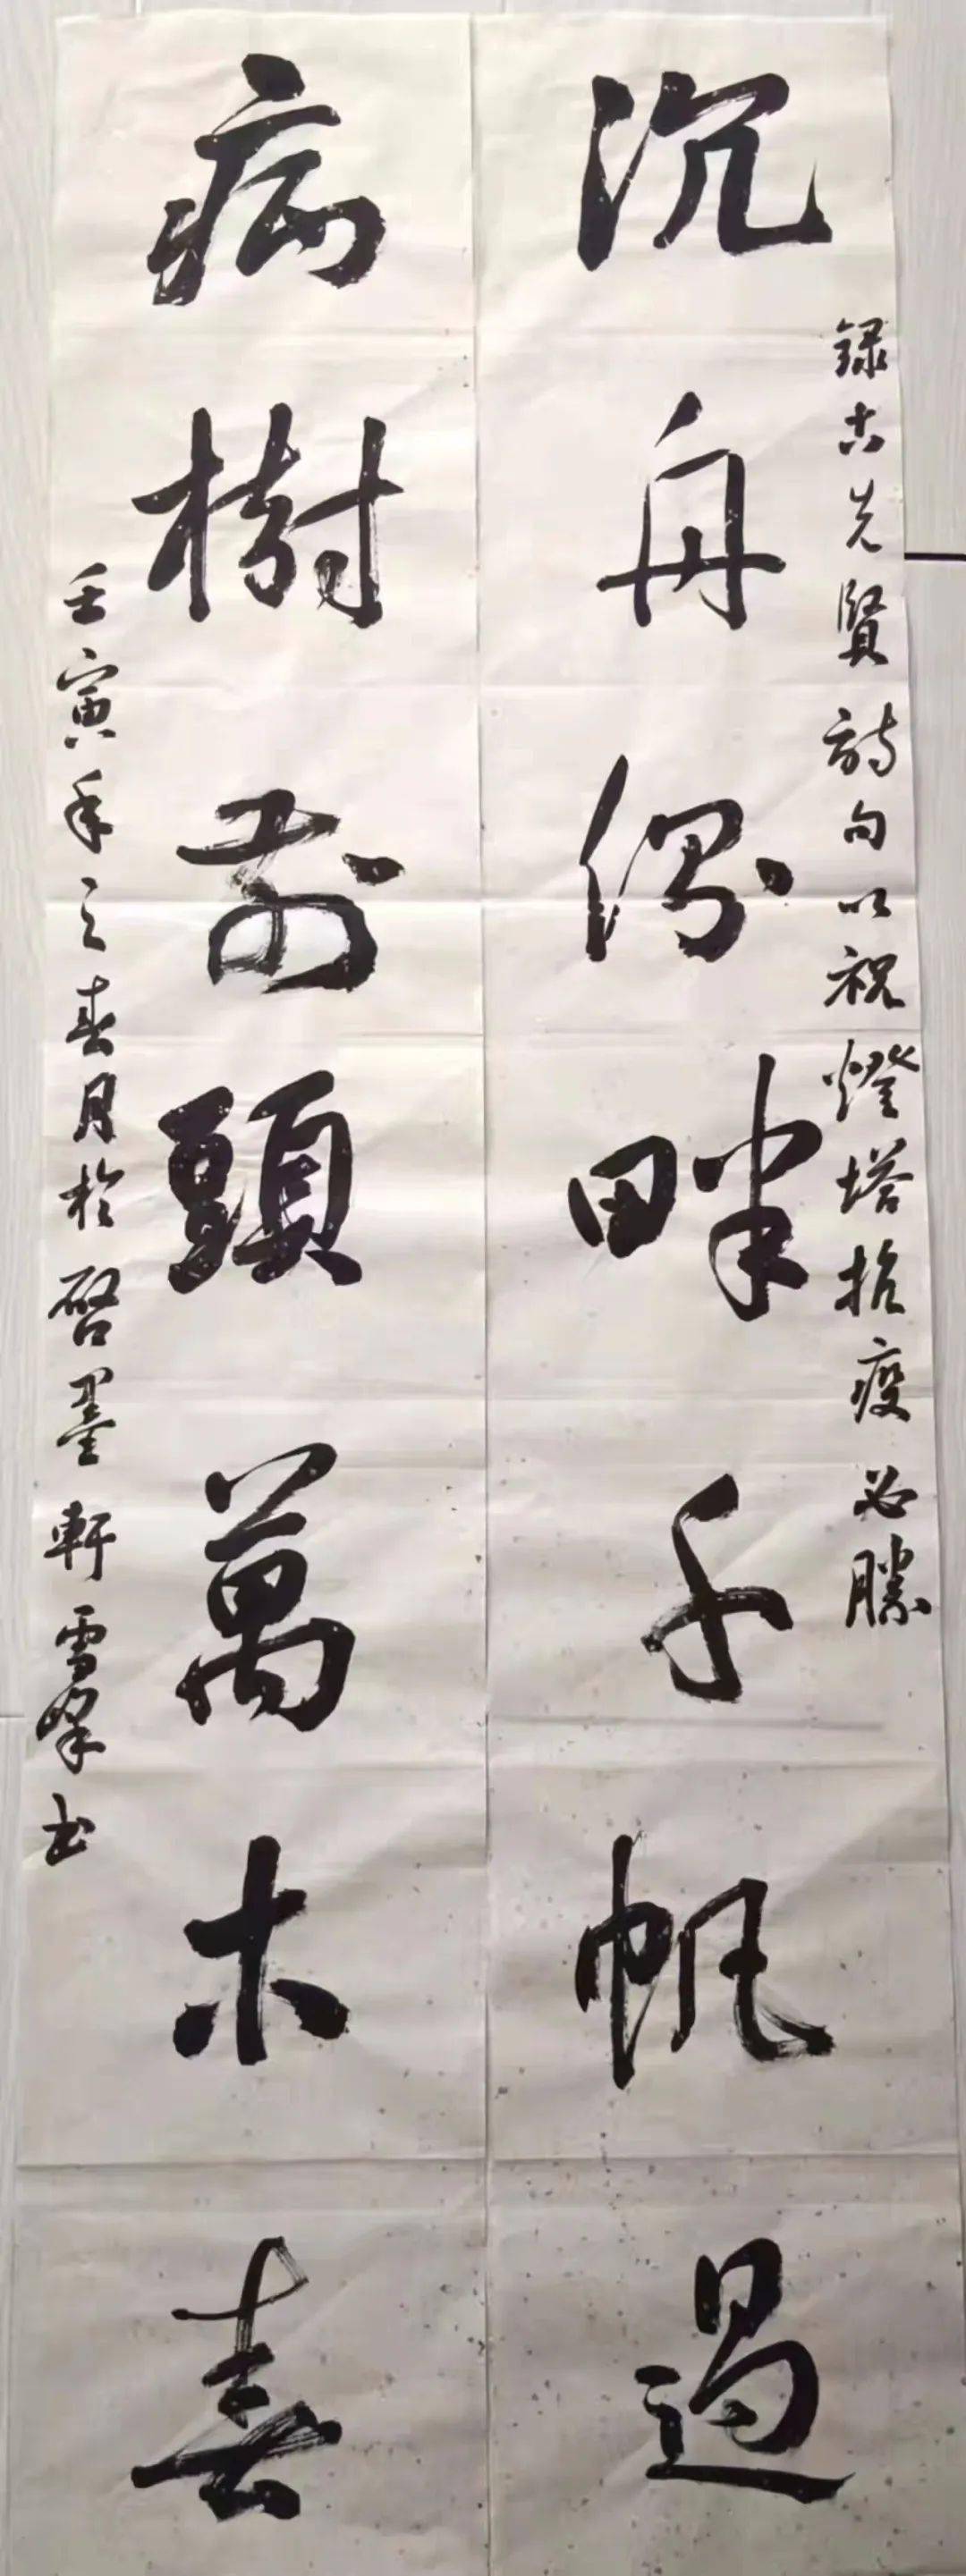 録古先賢詩句以祝燈塔抗疫必勝
沉舟側畔千帆過
病樹前頭萬木春
壬寅年之春月於啓墨軒雪峰書